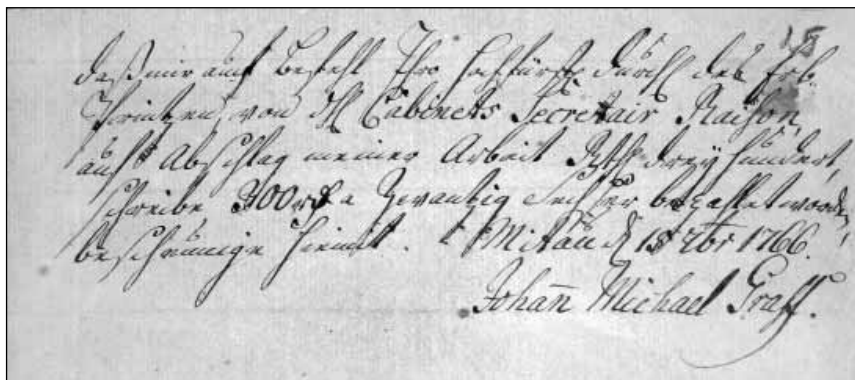 15
daß mir auf Befehl Ihro Hochfürstl Durchl des Erb-
Printzen, von dH Cabinets Secretair Raison,
auf Abschlag meiner Arbeit Rthl drey hundert,
schreibe 300 rth a Zwantzig Sechser bezahlet worden,
bescheinige hiemit. Mitau d 15 7br 1766.
Johan̄ Michael Graff.